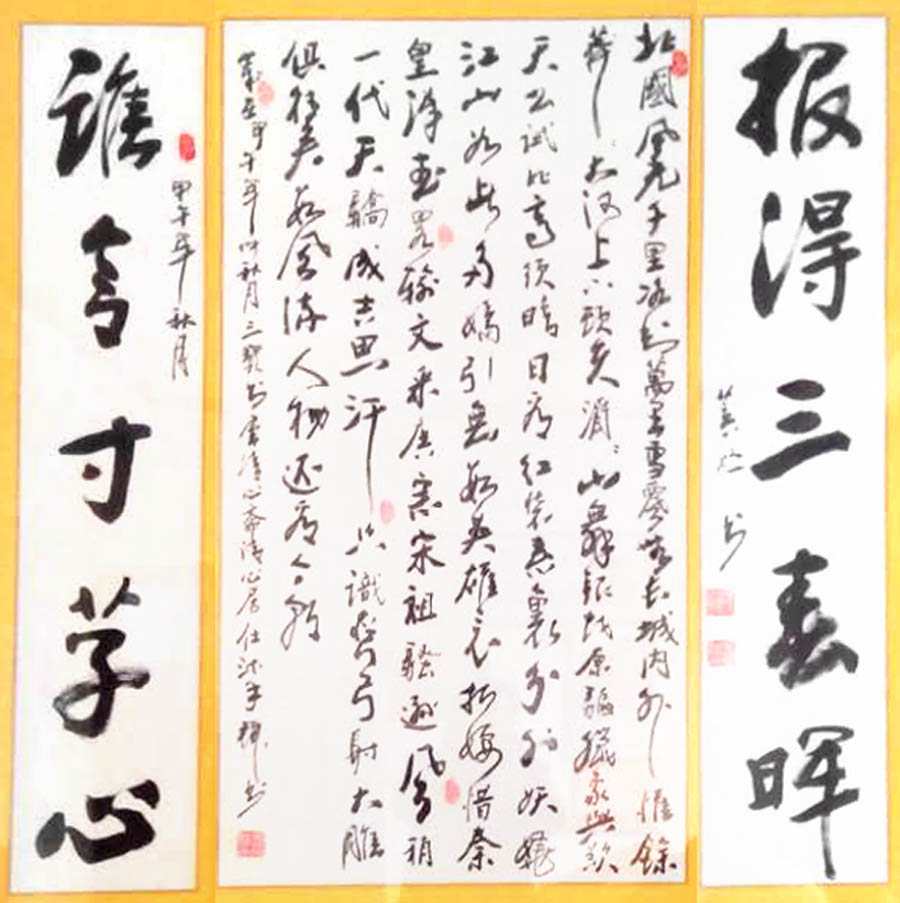 报得三春晖
书
北國風光千里冰封萬里雪飄望长城内外惟餘
莽莽大河上下頓失滔滔山舞银蛇原驰蠟象與欲
天公試比高须晴日看红装素裹分外妖娆
江山如此多嬌引無數英雄竞折腰惜秦
皇漢武略输文采唐宗宋祖騷遜風稍
一代天驕成吉思汗只識彎弓射大雕
俱往矣數風流人物还看今朝
歲在甲午年仲秋月
甲午年秋月
谁言寸草心